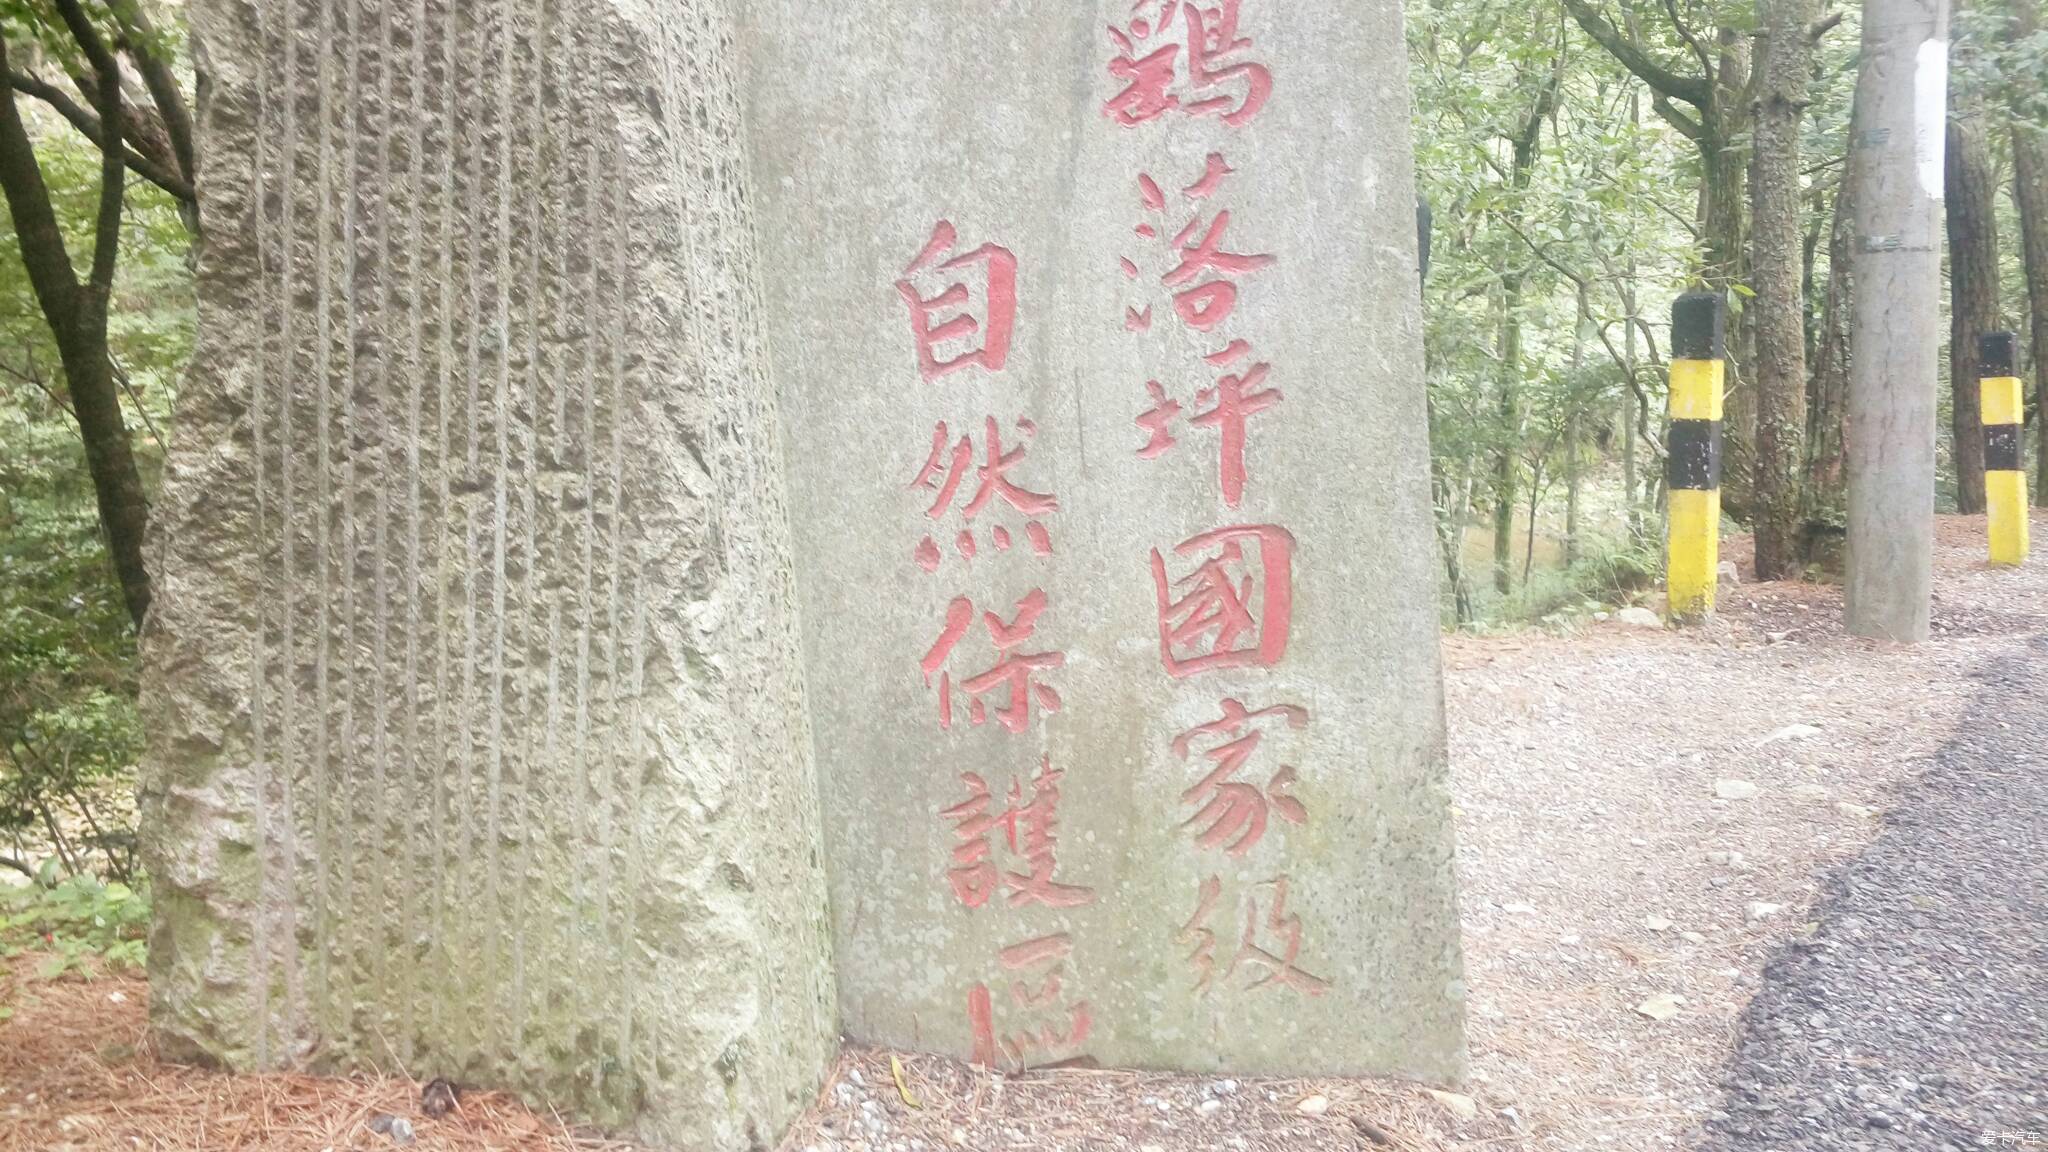 鷂落坪國家級
自然保護區
爱卡汽车